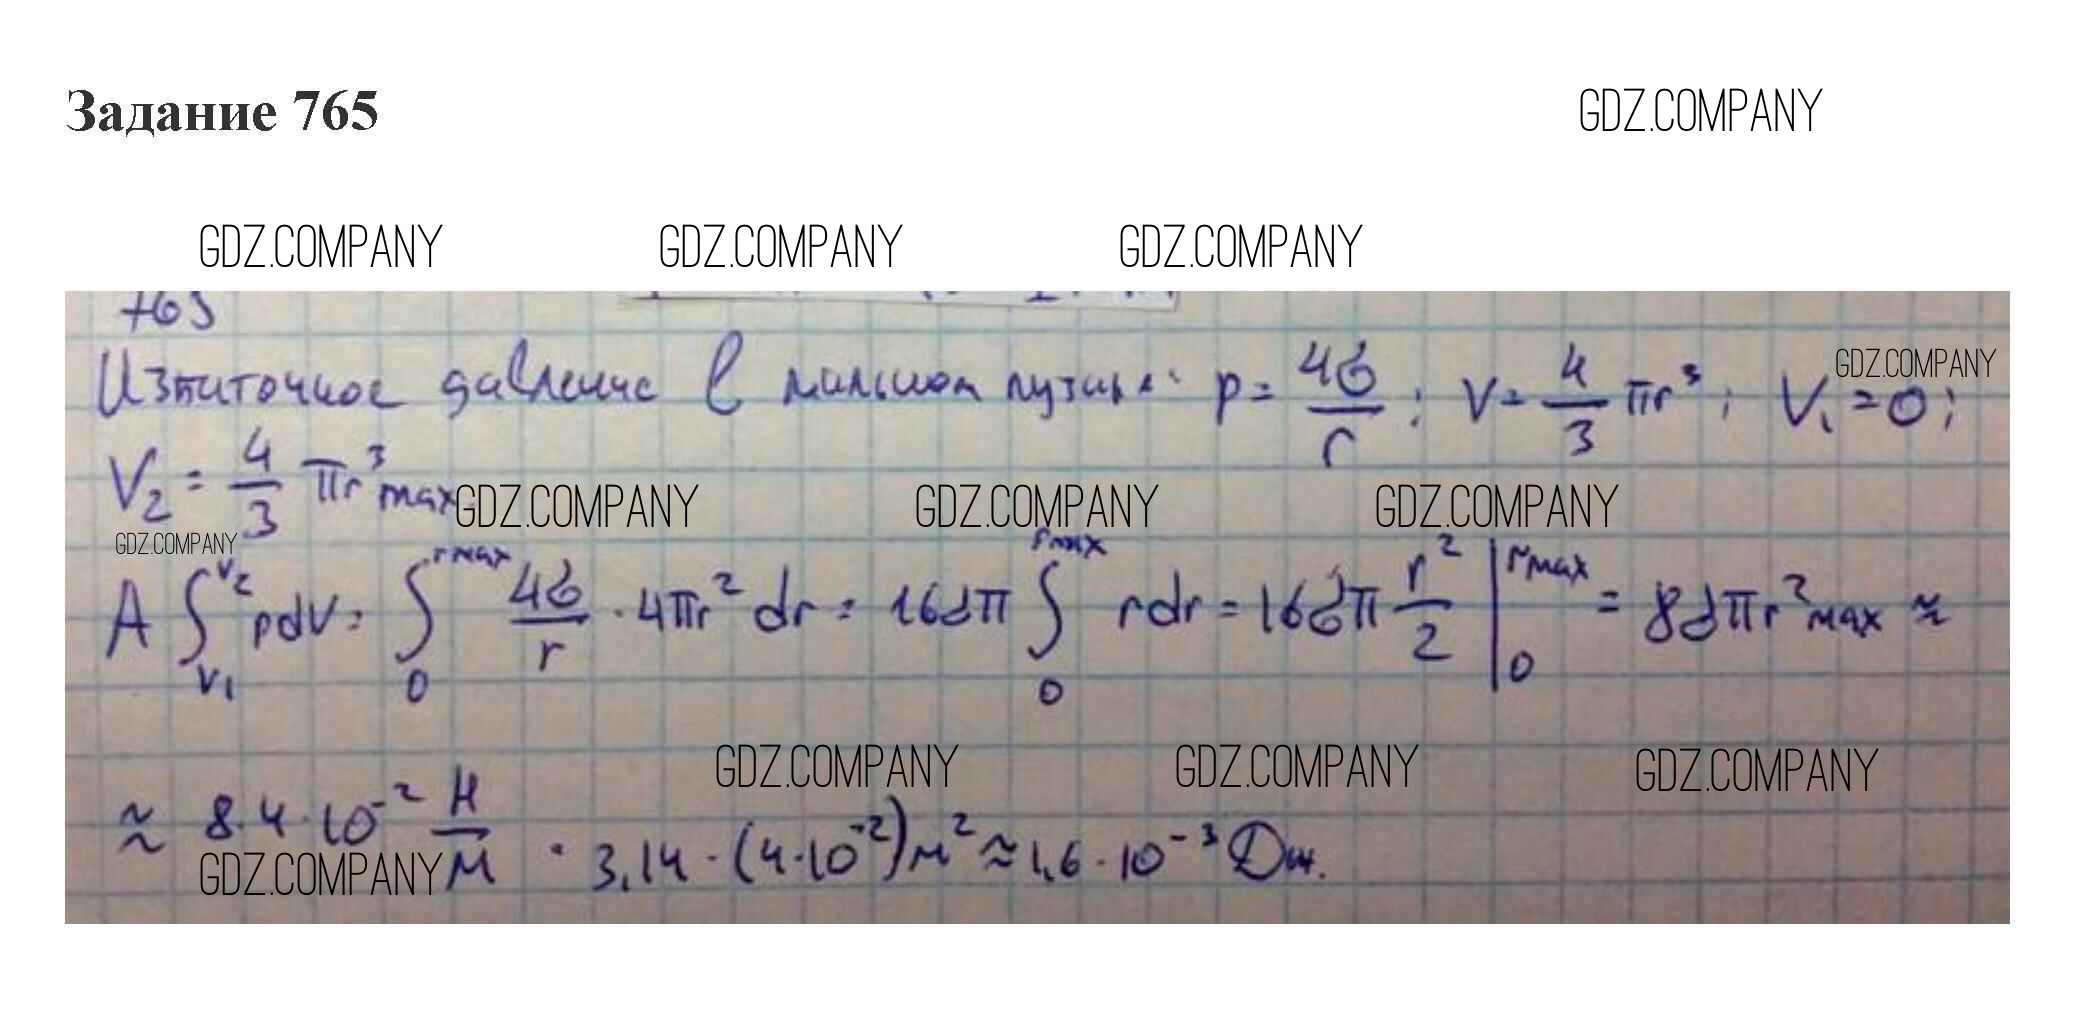 Задание 765
GDZ.COMPANY
GDZ.COMPANY GDZ.COMPANY GDZ.COMPANY
765
Избыточное давление в мыльном пузыре: p = 4σ/r; V = 4/3 πr³; V₁ = 0;
GDZ.COMPANY
V₂ = 4/3 πr³max
GDZ.COMPANY GDZ.COMPANY GDZ.COMPANY
GDZ.COMPANY
A ∫_{V₁}^{V₂} pdV = ∫_{0}^{rmax} 4σ/r · 4πr² dr = 16σπ ∫_{0}^{rmax} rdr = 16σπ r²/2 |_{0}^{rmax} = 8σπr²max ≈
GDZ.COMPANY GDZ.COMPANY GDZ.COMPANY
≈ 8·4·10⁻² Н/м · 3,14 · (4·10⁻²)м² ≈ 1,6·10⁻³ Дж.
GDZ.COMPANY